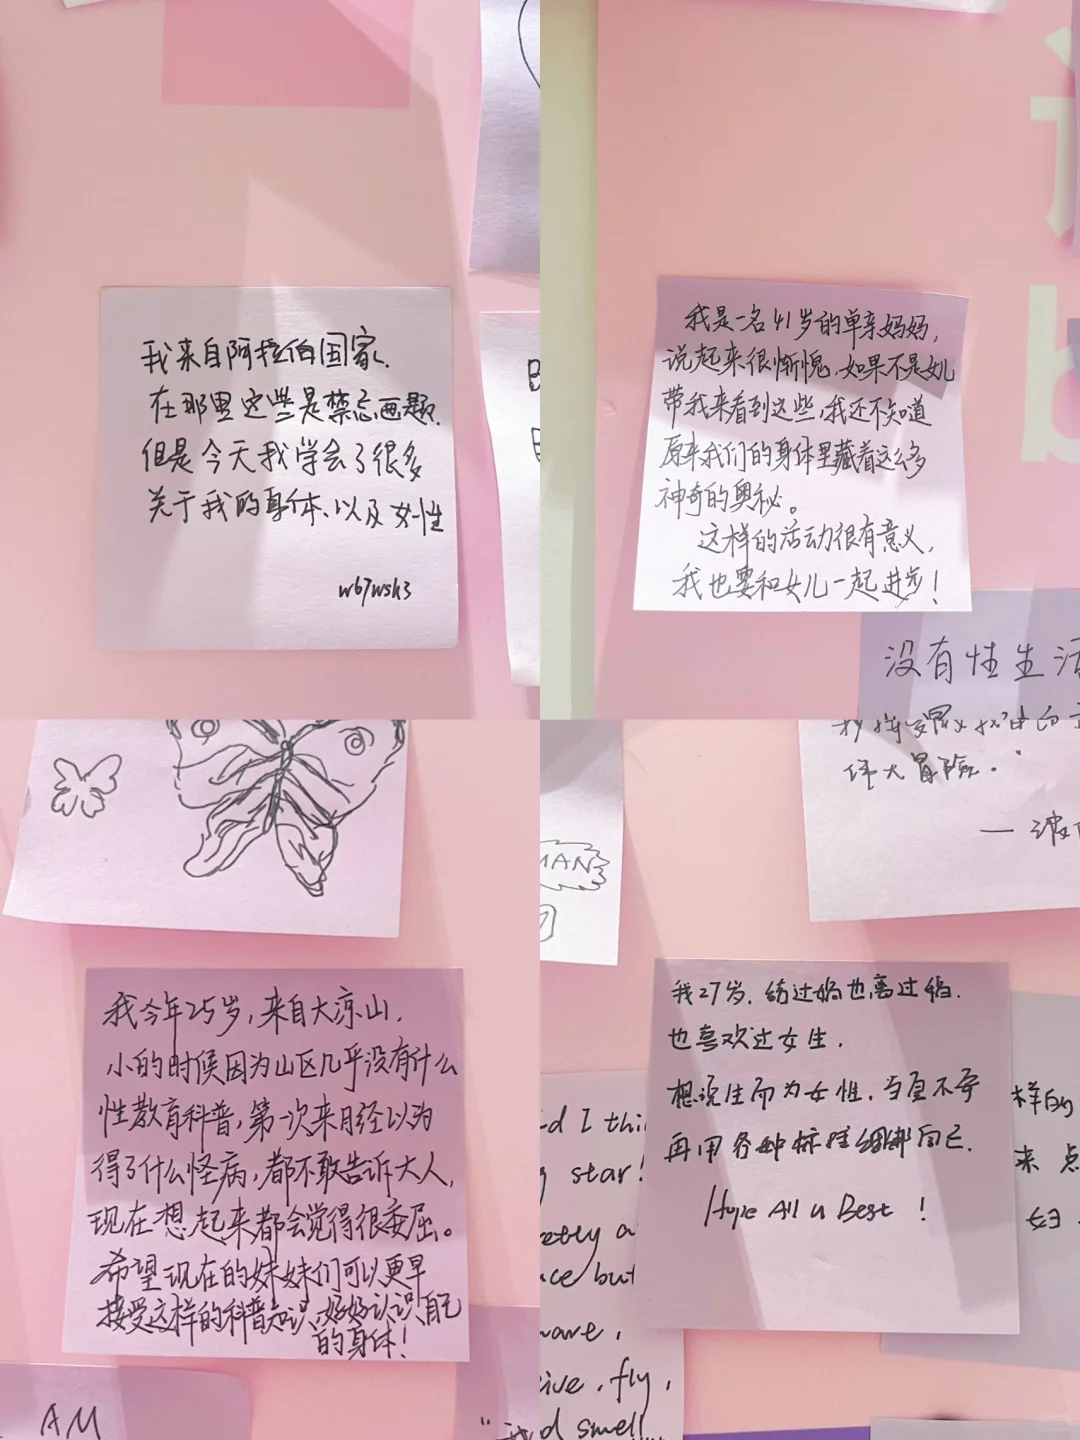 我来自阿拉伯国家.
在那里这些是禁忌画题.
但是今天我学会了很多
关于我的身体、以及女性
我是一名41岁的单亲妈妈,
说起来很惭愧,如果不是女儿
带我来看到这些,我还不知道
原来我们的身体里藏着这么多
神奇的奥秘。
这样的活动很有意义,
我也要和女儿一起进步!
没有性生活
伟大冒险."
MAN
我今年25岁,来自大凉山,
小的时候因为山区几乎没有什么
性教育科普,第一次来月经以为
得了什么怪病,都不敢告诉大人,
现在想起来都会觉得很委屈。
希望现在的妹妹们可以更早
接受这样的科普知识,好好认识自己
的身体!
AM
我27岁.结过婚也离过婚.
也喜欢过女生.
想说生而为女性,
再用各种标准绑自己.
Hope All u Best !
d I thi
star!
etty a
ce but
ware,
ive, fly,
d smell
样的
来点
妇
b